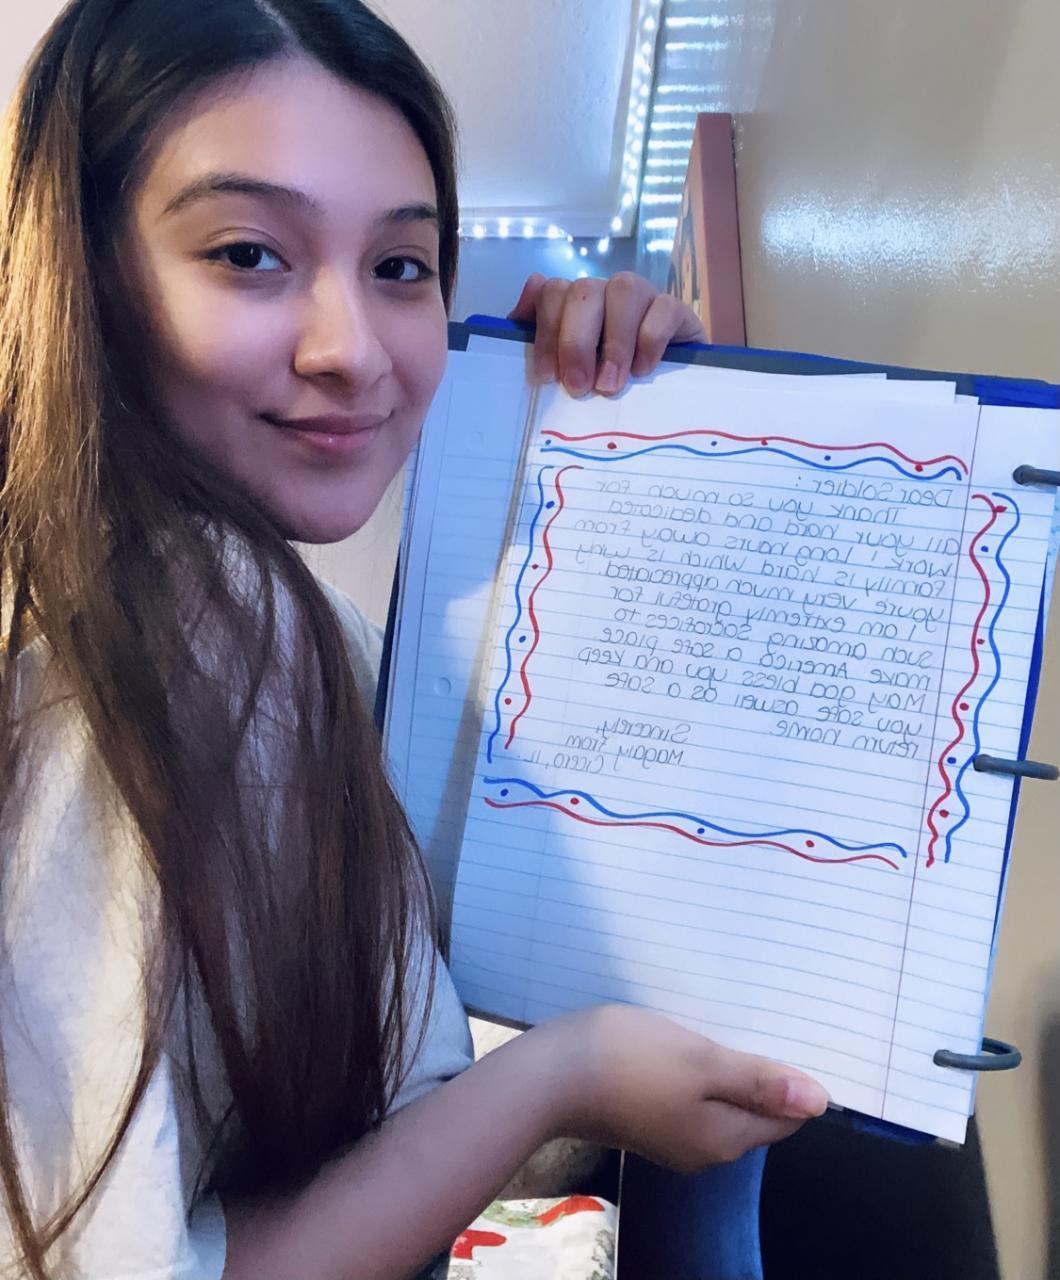 Dear Soldier:
Thank you so much for
all your hard and dedicated
work! Long hours away from
Family is hard which is why
you're very much appreciated.
I am extremly grateful for
such amazing sacrafices to
make America a safe place
May god bless you and keep
you safe aswell as a safe
return home
Sincerely,
Magaly From
Cicero, IL.